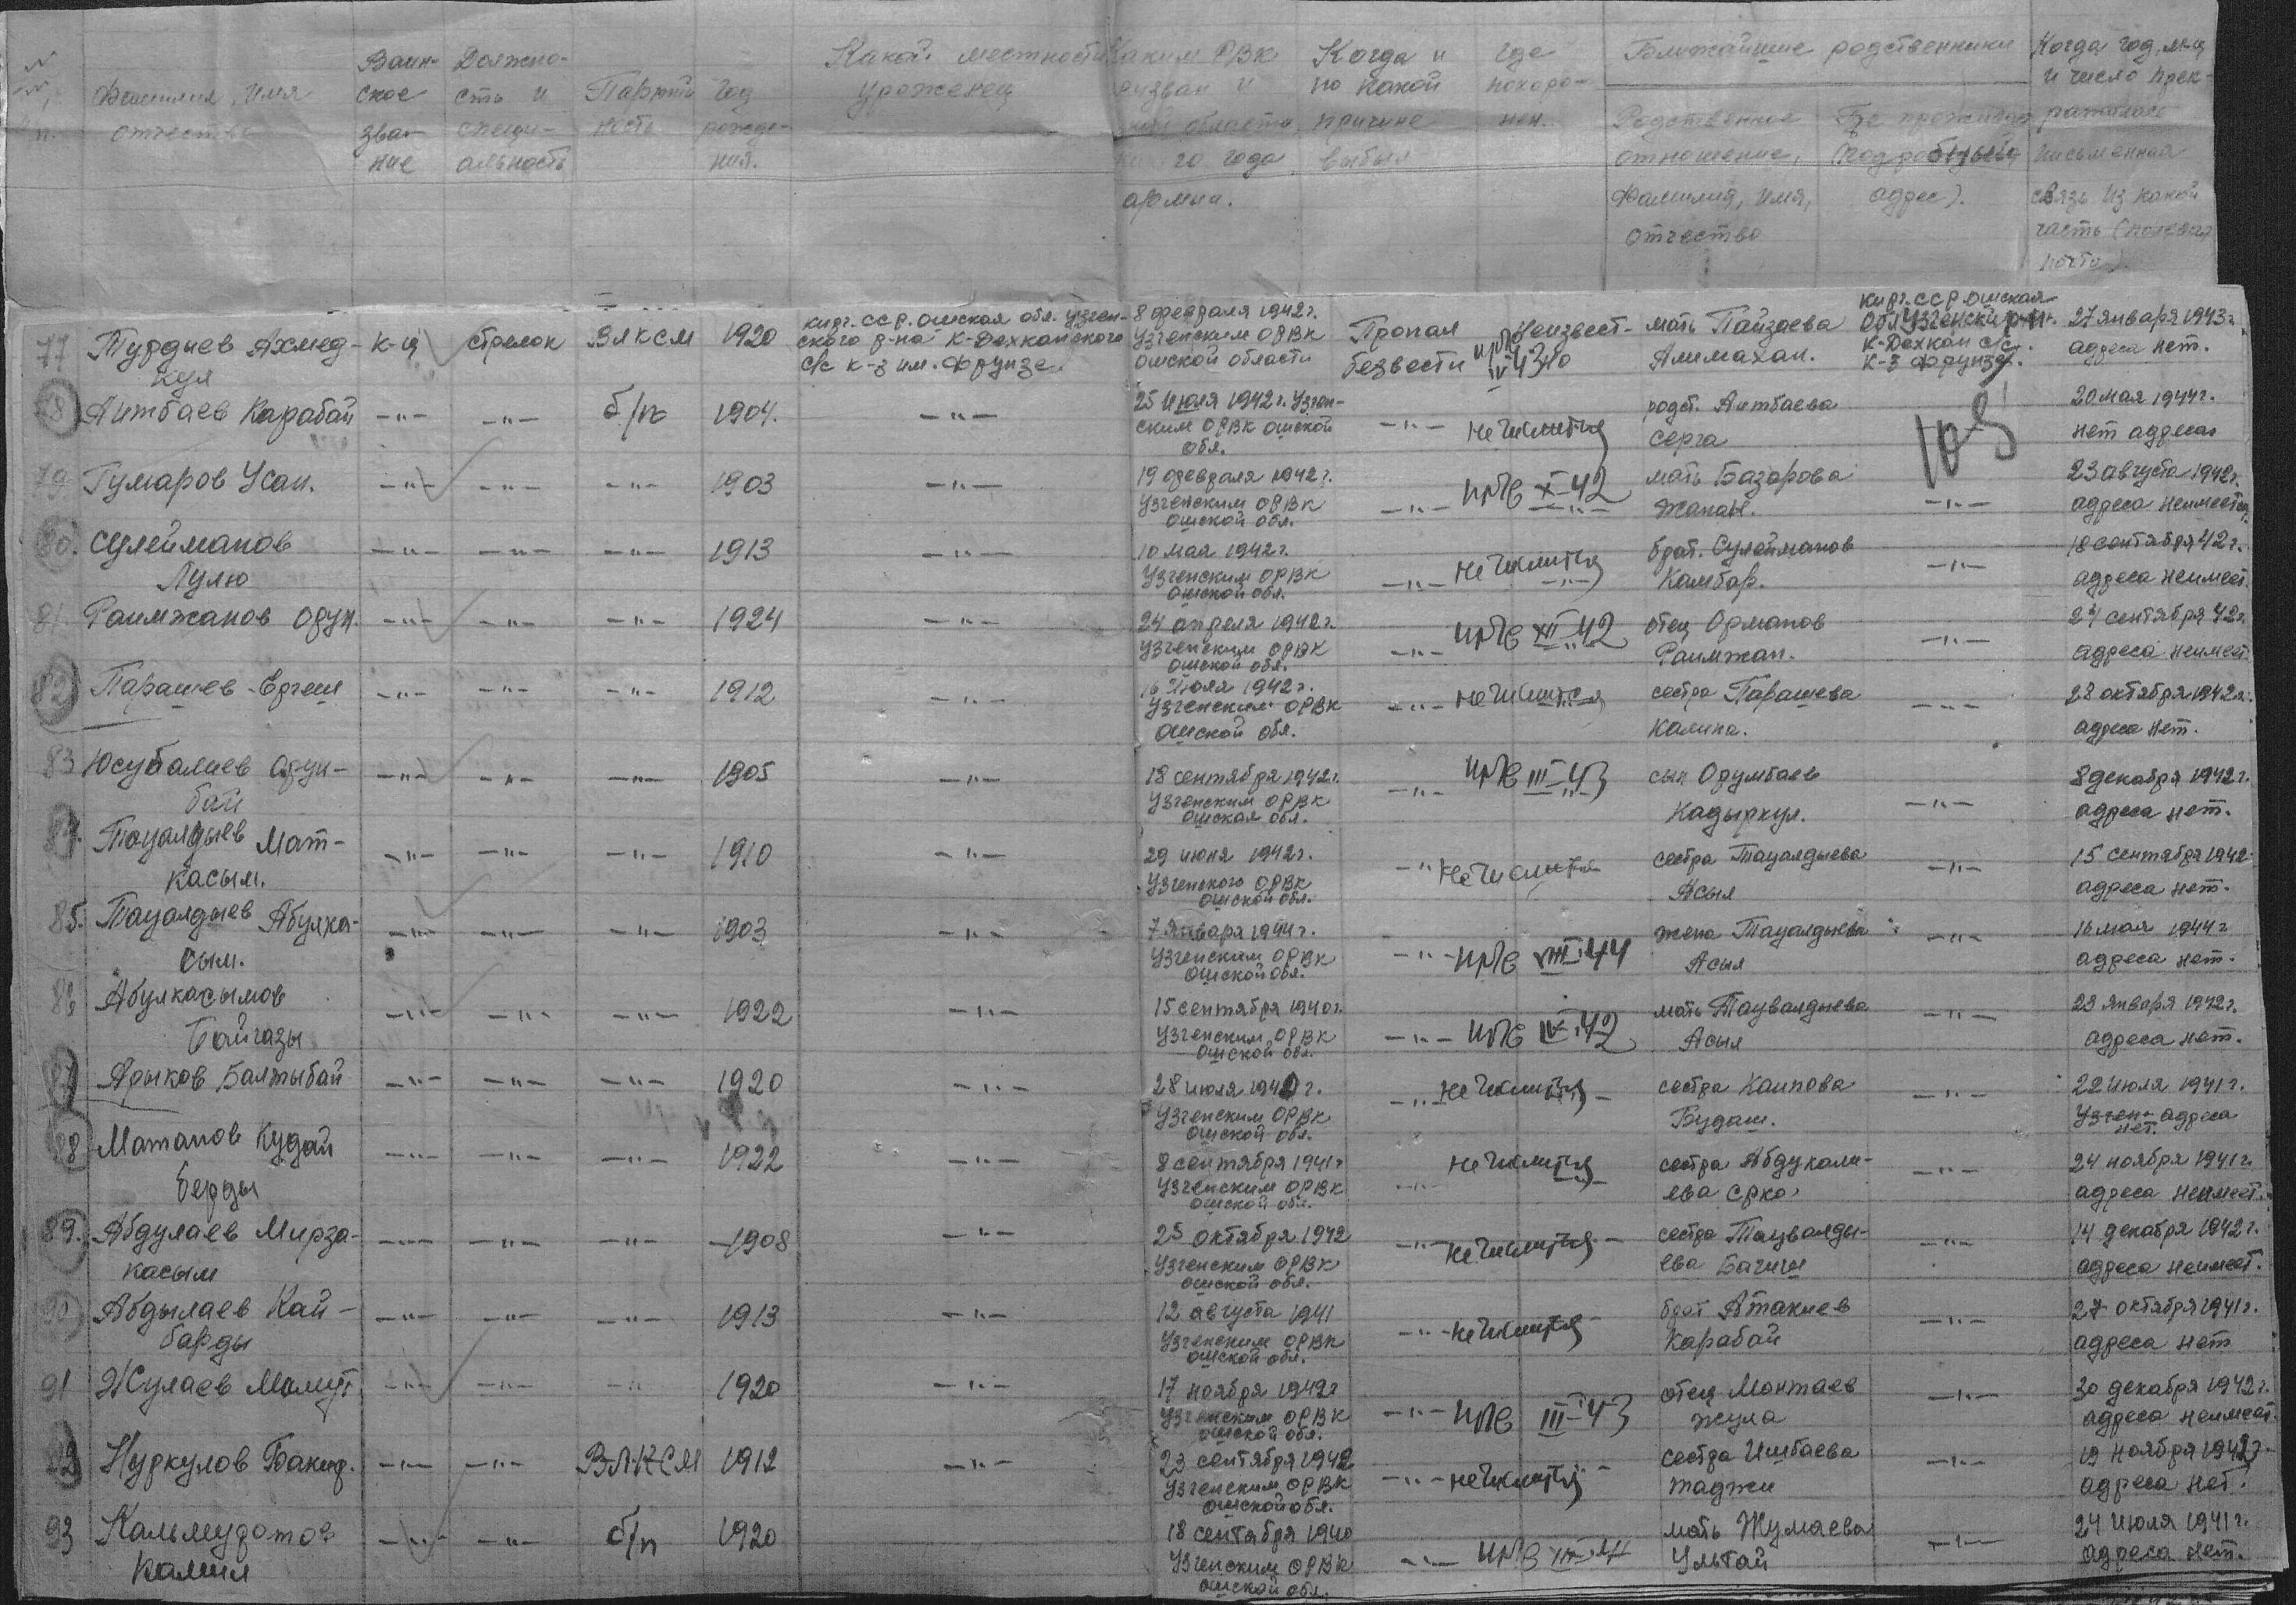 Фамилия, имя отчество
Воинское звание
Должность и специальность
Партийность
Год рождения.
Какой местности уроженец
Каким РВК призван и какой области какого года армии.
Когда и по какой причине выбыл
где похоронен.
Ближайшие родственники
Родственные отношение, Фамилия, имя, отчество
Где проживает (подробный адрес).
Когда год, м-ц и число прекратилась письменная связь из какой часть (полевая почта).
77 Турдиев Ахмедкул к-ц стрелок ВЛКСМ 1920 кирг. ССР. Ошская обл. Узгенского р-на К-Дехканского с/с к-з им. Фрунзе. 8 февраля 1942г. Узгенским ОРВК ошской области Пропал безвести Неизвестно мать Пайзаева Алимахан. кирг. ССР Ошская обл Узгенский р-н. К-Дехкан с/с. К-з Фрунзе. 27 января 1943г. адреса нет.
78 Аитбаев Карабай -"- -"- б/п 1904. -"- 25 июля 1942г. Узгенским ОРВК ошской обл. -"- не числится родст. Аитбаева Серга 108 20 мая 1944г. нет адреса
79 Гумаров Усан. -"- -"- -"- 1903 -"- 19 февраля 1942г. Узгенским ОРВК ошской обл. -"- X-42 -"- мать Базарова Жапаы. -"- 23 августа 1942г. адреса неимеется.
80. Сулейманов Лулю -"- -"- -"- 1913 -"- 10 мая 1942г. Узгенским ОРВК ошской обл. -"- не числится -"- брат. Сулейманов Камбар. -"- 18 сентября 42г. адреса неимеет.
81. Раимжанов Орун. -"- -"- -"- 1924 -"- 24 апреля 1942г. Узгенским ОРВК ошской обл. -"- XII-42 -"- отец Орманов Раимжан. -"- 24 сентября 42г. адреса неимеет.
82 Парашев Эргеш -"- -"- -"- 1912 -"- 16 июля 1942г. Узгенским ОРВК ошской обл. -"- не числится сестра Парашева Калина. -"- 28 октября 1942г. адреса нет.
83 Юсубалиев Орунбай -"- -"- -"- 1905 -"- 18 сентября 1942г. Узгенским ОРВК ошская обл. -"- III-43 -"- сын Орумбаев Кадыркул. -"- 8 декабря 1942г. адреса нет.
84. Тауалдыев Маткасым. -"- -"- -"- 1910 -"- 29 июня 1942г. Узгенского ОРВК ошской обл. -"- не числится сестра Тауалдыева Асыл -"- 15 сентября 1942 адреса нет.
85. Тауалдыев Абулкасым. -"- -"- -"- 1903 -"- 7 января 1944г. Узгенским ОРВК ошской обл. -"- VIII-44 жена Тауалдыева Асыл -"- 16 мая 1944г адреса нет.
86 Абулкасымов Байгазы -"- -"- -"- 1922 -"- 15 сентября 1940г. Узгенским ОРВК ошской обл. -"- IV-42 мать Таувалдыева Асыл -"- 23 января 1942г. адреса нет.
87 Арыков Балтыбай -"- -"- -"- 1920 -"- 28 июля 1940г. Узгенским ОРВК ошской обл. -"- не числится сестра Каипова Будаш. -"- 22 июля 1941г. Узген- адреса нет.
88 Матанов Кудай берды -"- -"- -"- 1922 -"- 8 сентября 1941г Узгенским ОРВК ошской обл. -"- не числится сестра Абдукалиева Срко. -"- 24 ноября 1941г. адреса неимеет.
89. Абдулаев Мирзакасым -"- -"- -"- 1908 -"- 25 октября 1942 Узгенским ОРВК ошской обл. -"- не числится сестра Таувалдыева Багиш -"- 14 декабря 1942г. адреса неимеет.
90 Абдылаев Кайбарды -"- -"- -"- 1913 -"- 12 августа 1941 Узгенским ОРВК ошской обл. -"- не числится брат Атакиев Карабай -"- 27 октября 1941г. адреса нет
91 Жулаев Мамут -"- -"- -"- 1920 -"- 17 ноября 1942г Узгенским ОРВК ошской обл. -"- III-43 отец Монтаев жула -"- 30 декабря 1942г. адреса неимеет.
92 Нуркулов Бакир. -"- -"- ВЛКСМ 1912 -"- 23 сентября 1942 Узгенским ОРВК ошской обл. -"- не числится сестра Ишбаева таджи -"- 19 ноября 1942г. адреса нет.
93 Кальмуротов Камил -"- -"- б/п 1920 18 сентября 1940 Узгенским ОРВК ошской обл. -"- мать Жумаева Ультай -"- 24 июля 1941г. адреса нет.